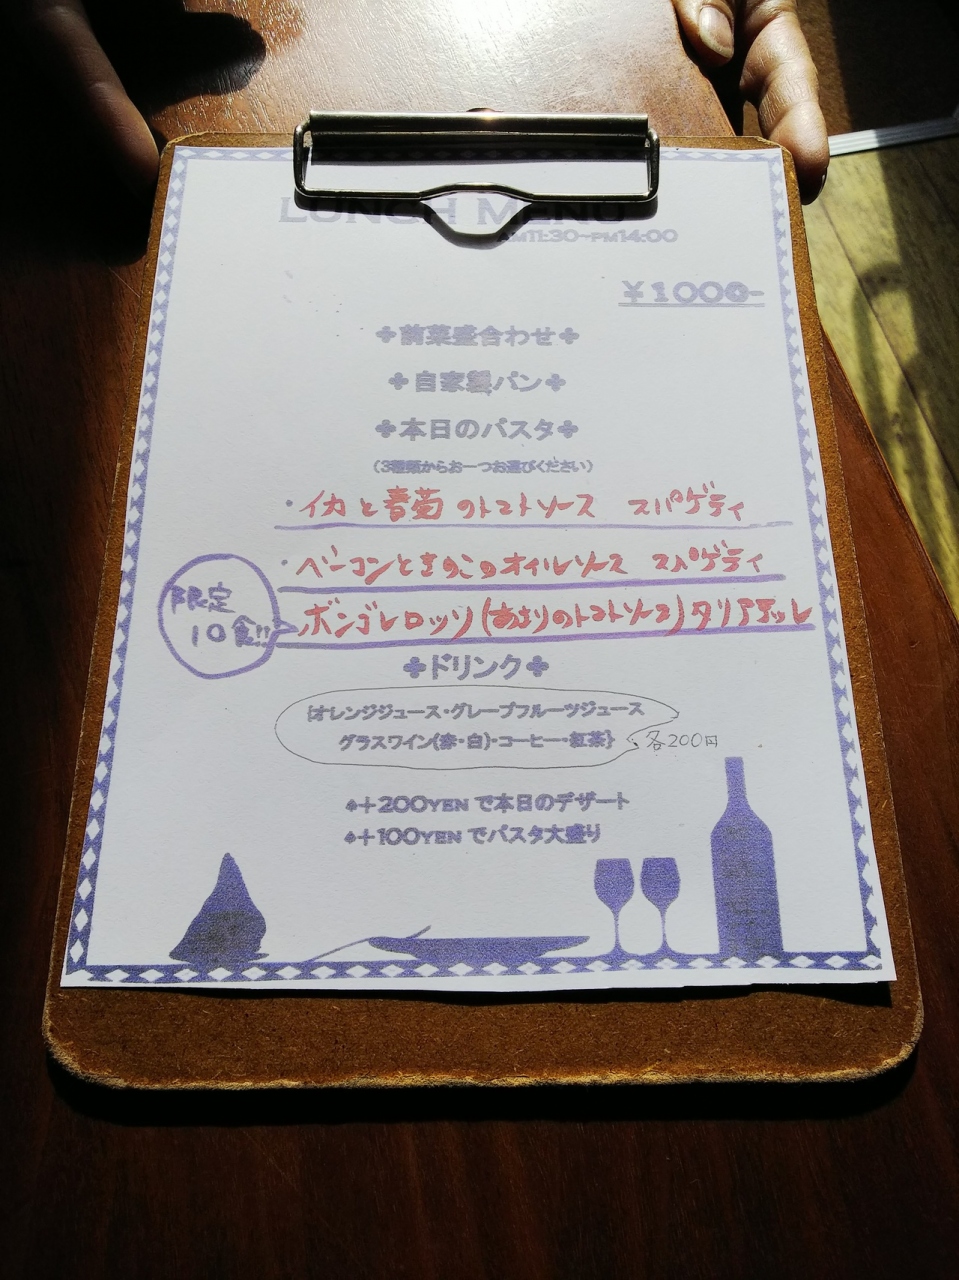 LUNCH MENU
AM11:30~PM14:00
￥1000-
✤前菜盛合わせ✤
✤自家製パン✤
✤本日のパスタ✤
(3種類からお一つお選びください)
・イカと春菊のトマトソース スパゲティ
・ベーコンときのこのオイルソース スパゲティ
限定
10食!!
ボンゴレロッソ(あさりのトマトソース)タリアテッレ
✤ドリンク✤
{オレンジジュース・グレープフルーツジュース
グラスワイン(赤・白)・コーヒー・紅茶}
各200円
♠+200YENで本日のデザート
♠+100YENでパスタ大盛り